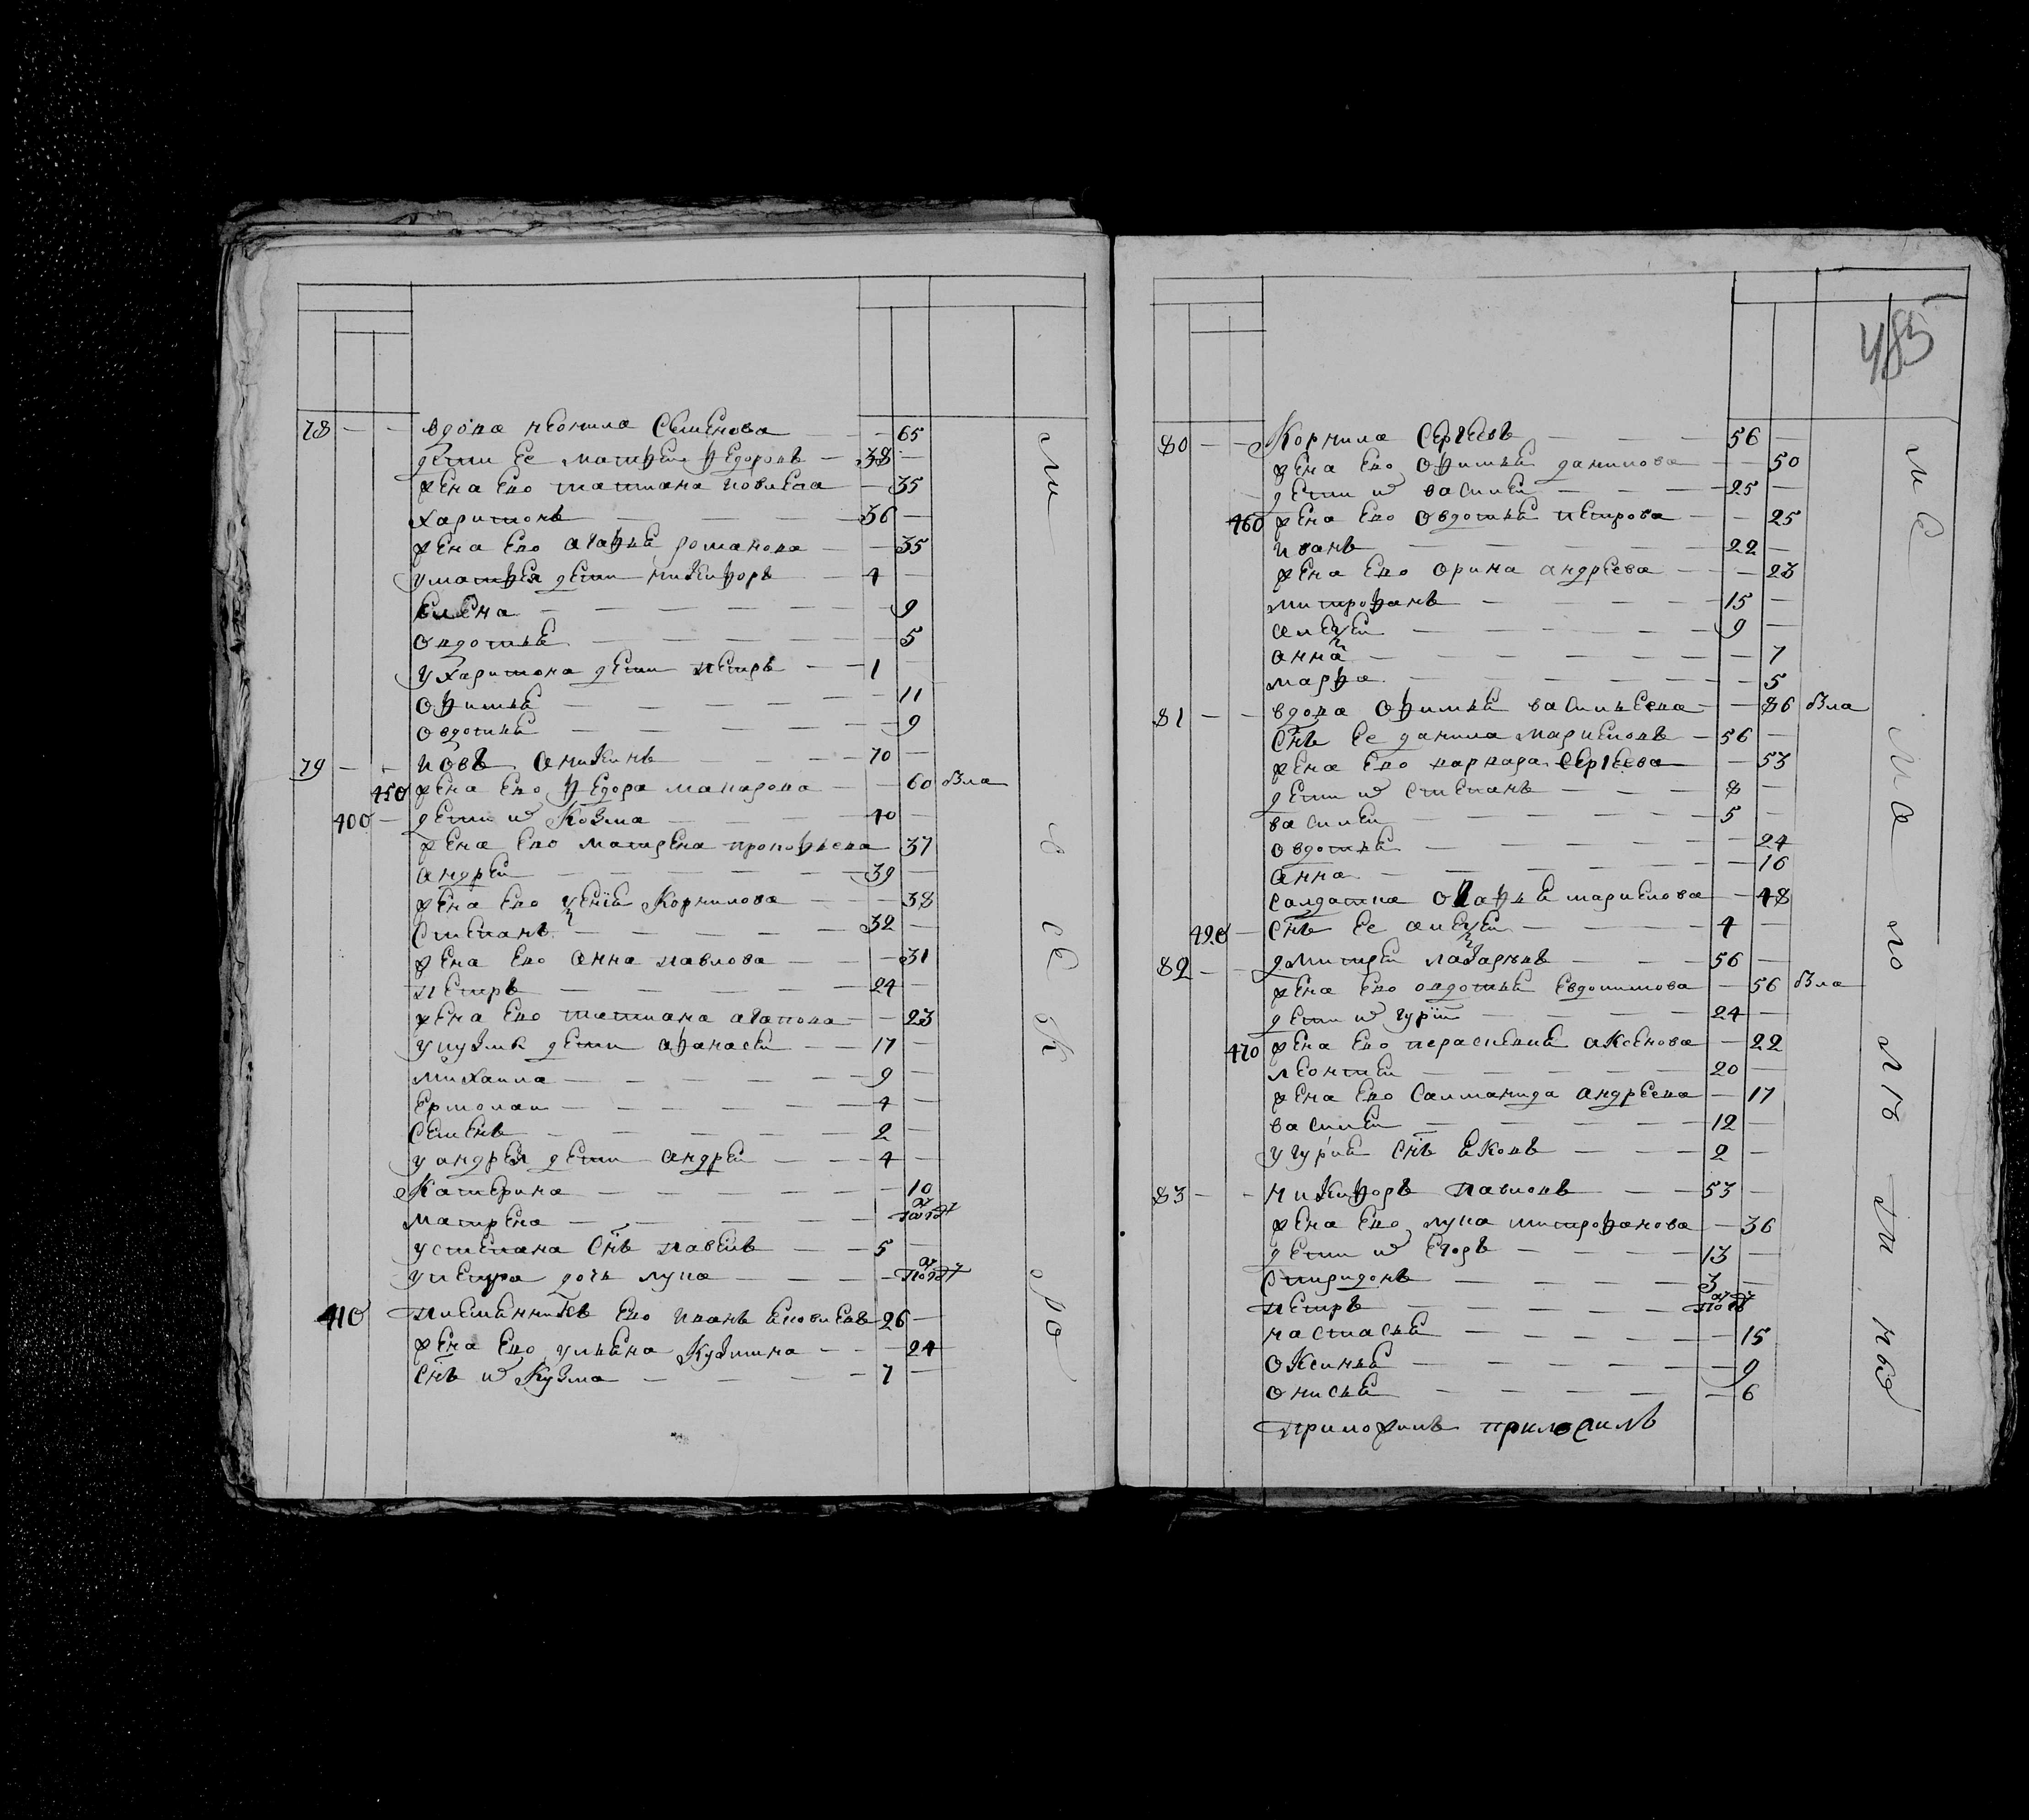 78 вдова неонила Семенова 65
дети ее матфеи федоровъ 38
жена ево татиана иовлева 35
харитонъ 36
жена ево агафья романова 35
у матфея дети никифоръ 4
Елена 9
овдотья 5
у харитона дети петръ 1
офимья 11
овдотья 9
79 иовъ аникинъ 70
450 жена ево федора макарова 60 взла
400 дети их Козма 40
жена ево матрена прокофьева 37
андреи 39
жена ево Корнилова 38
Степанъ 32
жена ево анна павлова 31
петръ 24
жена ево татиана агапова 23
у кузмы дети афанасеи 17
михаила 9
Ермолаи 4
Семенъ 2
у андрея дети андреи 4
Катерина 10
матрена
у степана снъ павелъ 5
у петра дочь лукia
410 племянникъ ево иванъ 26
жена ево ульяна Кузмина 24
снъ их Кузма 7
485
80 Корнила Сергеевъ 56
жена ево офимья данилова 50
дети их василеи 25
460 жена ево овдотья петрова 25
иванъ 22
жена ево орина андреева 23
митрофанъ 15
алексеи 9
анна 7
марфа 5
81 вдова офимья васильева 86 взла
снъ ее данила маркеловъ 56
жена ево варвара Сергеева 53
дети их степанъ 8
василеи 5
овдотья 24
анна 16
салдатка огафья маркелова 48
420 снъ ее алексеи 4
82 дмитреи лазаревъ 56
жена ево овдотья Евдокимова 56 взла
дети их гурiи 24
470 жена ево парасковия аксенова 22
леонтеи 20
жена ево Саломанида андреева 17
василеи 12
у гурiя снъ яковъ 2
83 никифоръ павловъ 53
жена ево митрофанова 36
дети их Егоръ 13
Спиридонъ 3
петръ
настасья 15
оксинья 9
онисья 6
приложилъ приложилъ